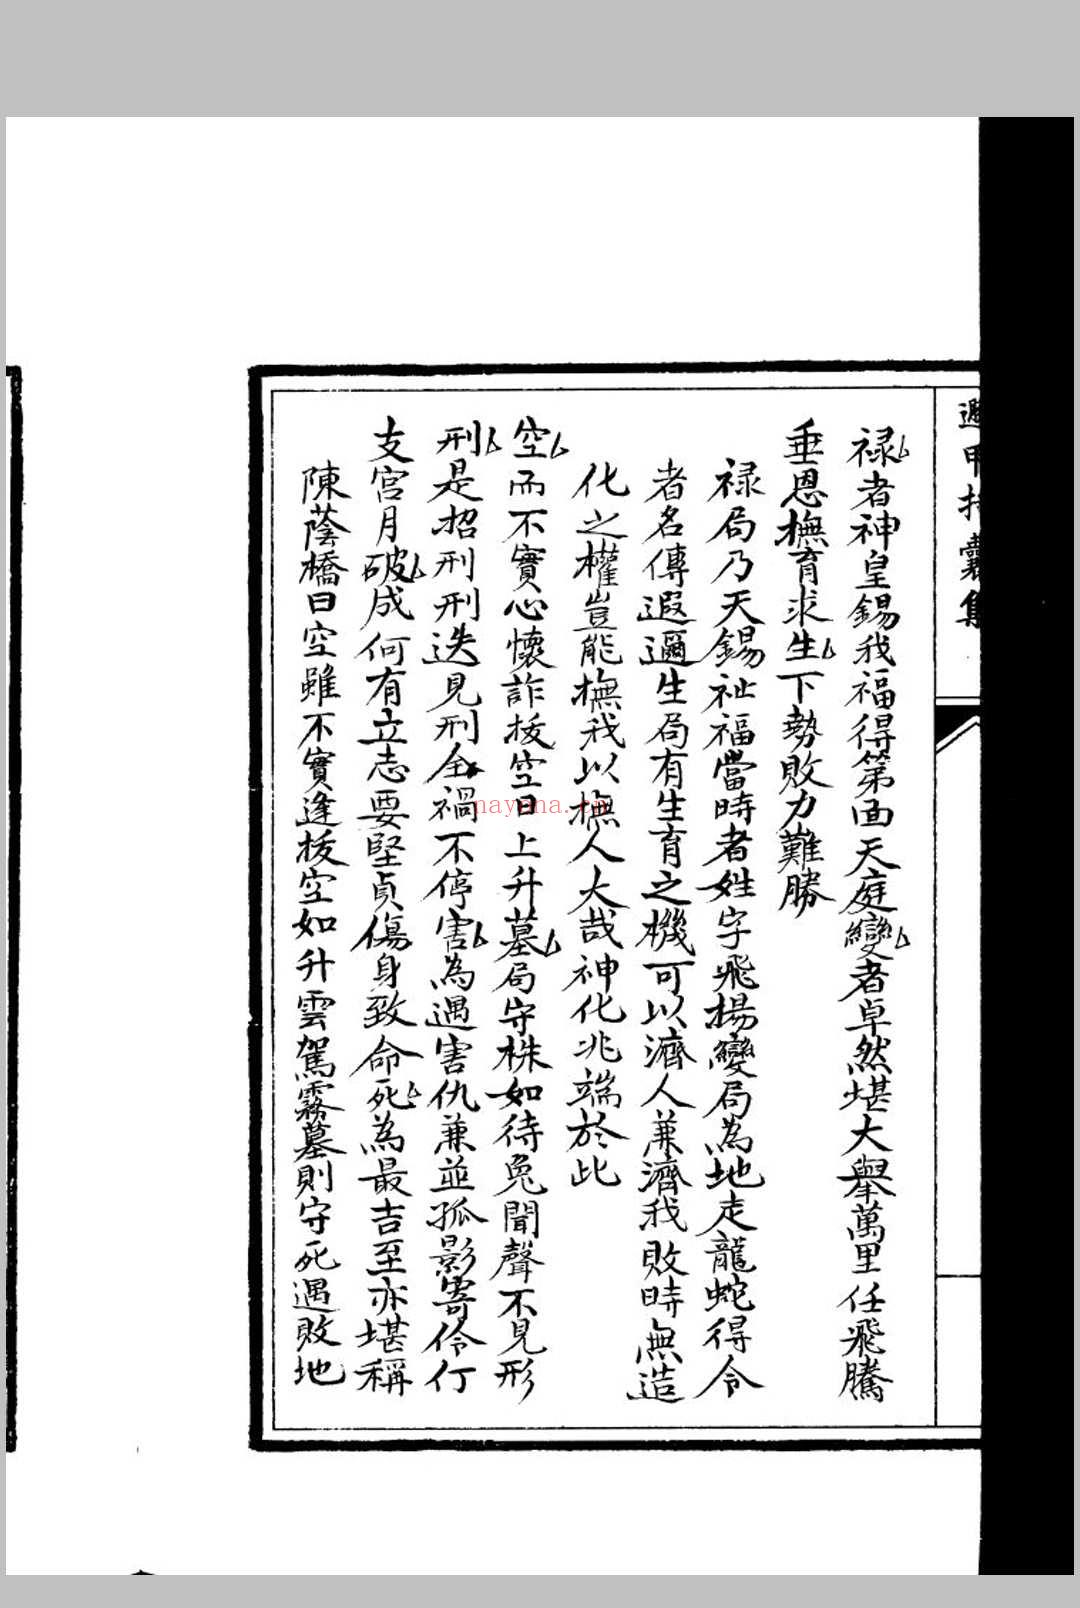 遁甲括囊集
禄者神皇錫我福得第面天庭變者卓然堪大舉萬里任飛騰
垂恩撫育求生下勢敗力難勝
禄局乃天錫祉福當時者姓字飛揚變局為地走龍蛇得令
者名傳遐邇生局有生育之機可以濟人兼濟我敗時無造
化之權豈能撫我以撫人大哉神化兆端於此
空而不實心懷詐拔空日上升墓局守株如待兔聞聲不見形
刑是招刑刑迭見刑全禍不停害為遇害仇兼並孤影寄伶仃
支宮月破成何有立志要堅貞傷身致命死為最吉至亦堪稱
陳蔭橋曰空雖不實逢拔空如升雲駕霧墓則守死遇敗地
nayona.cn